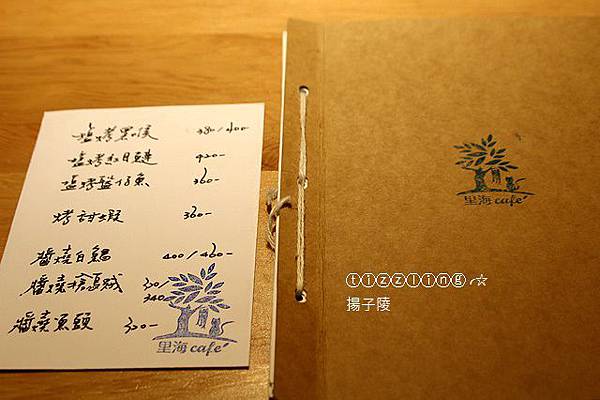 塩烤黑喉 380/400-
塩烤紅目鰱 420-
塩烤盤仔魚 360-
烤甜蝦 360-
醬燒白鯧 400/460-
醬燒
醬燒魚頭 320-
里海 cafe'
里海 cafe'
ⓣⓘⓩⓩⓛⓘⓝⓖ☆
揚子陵